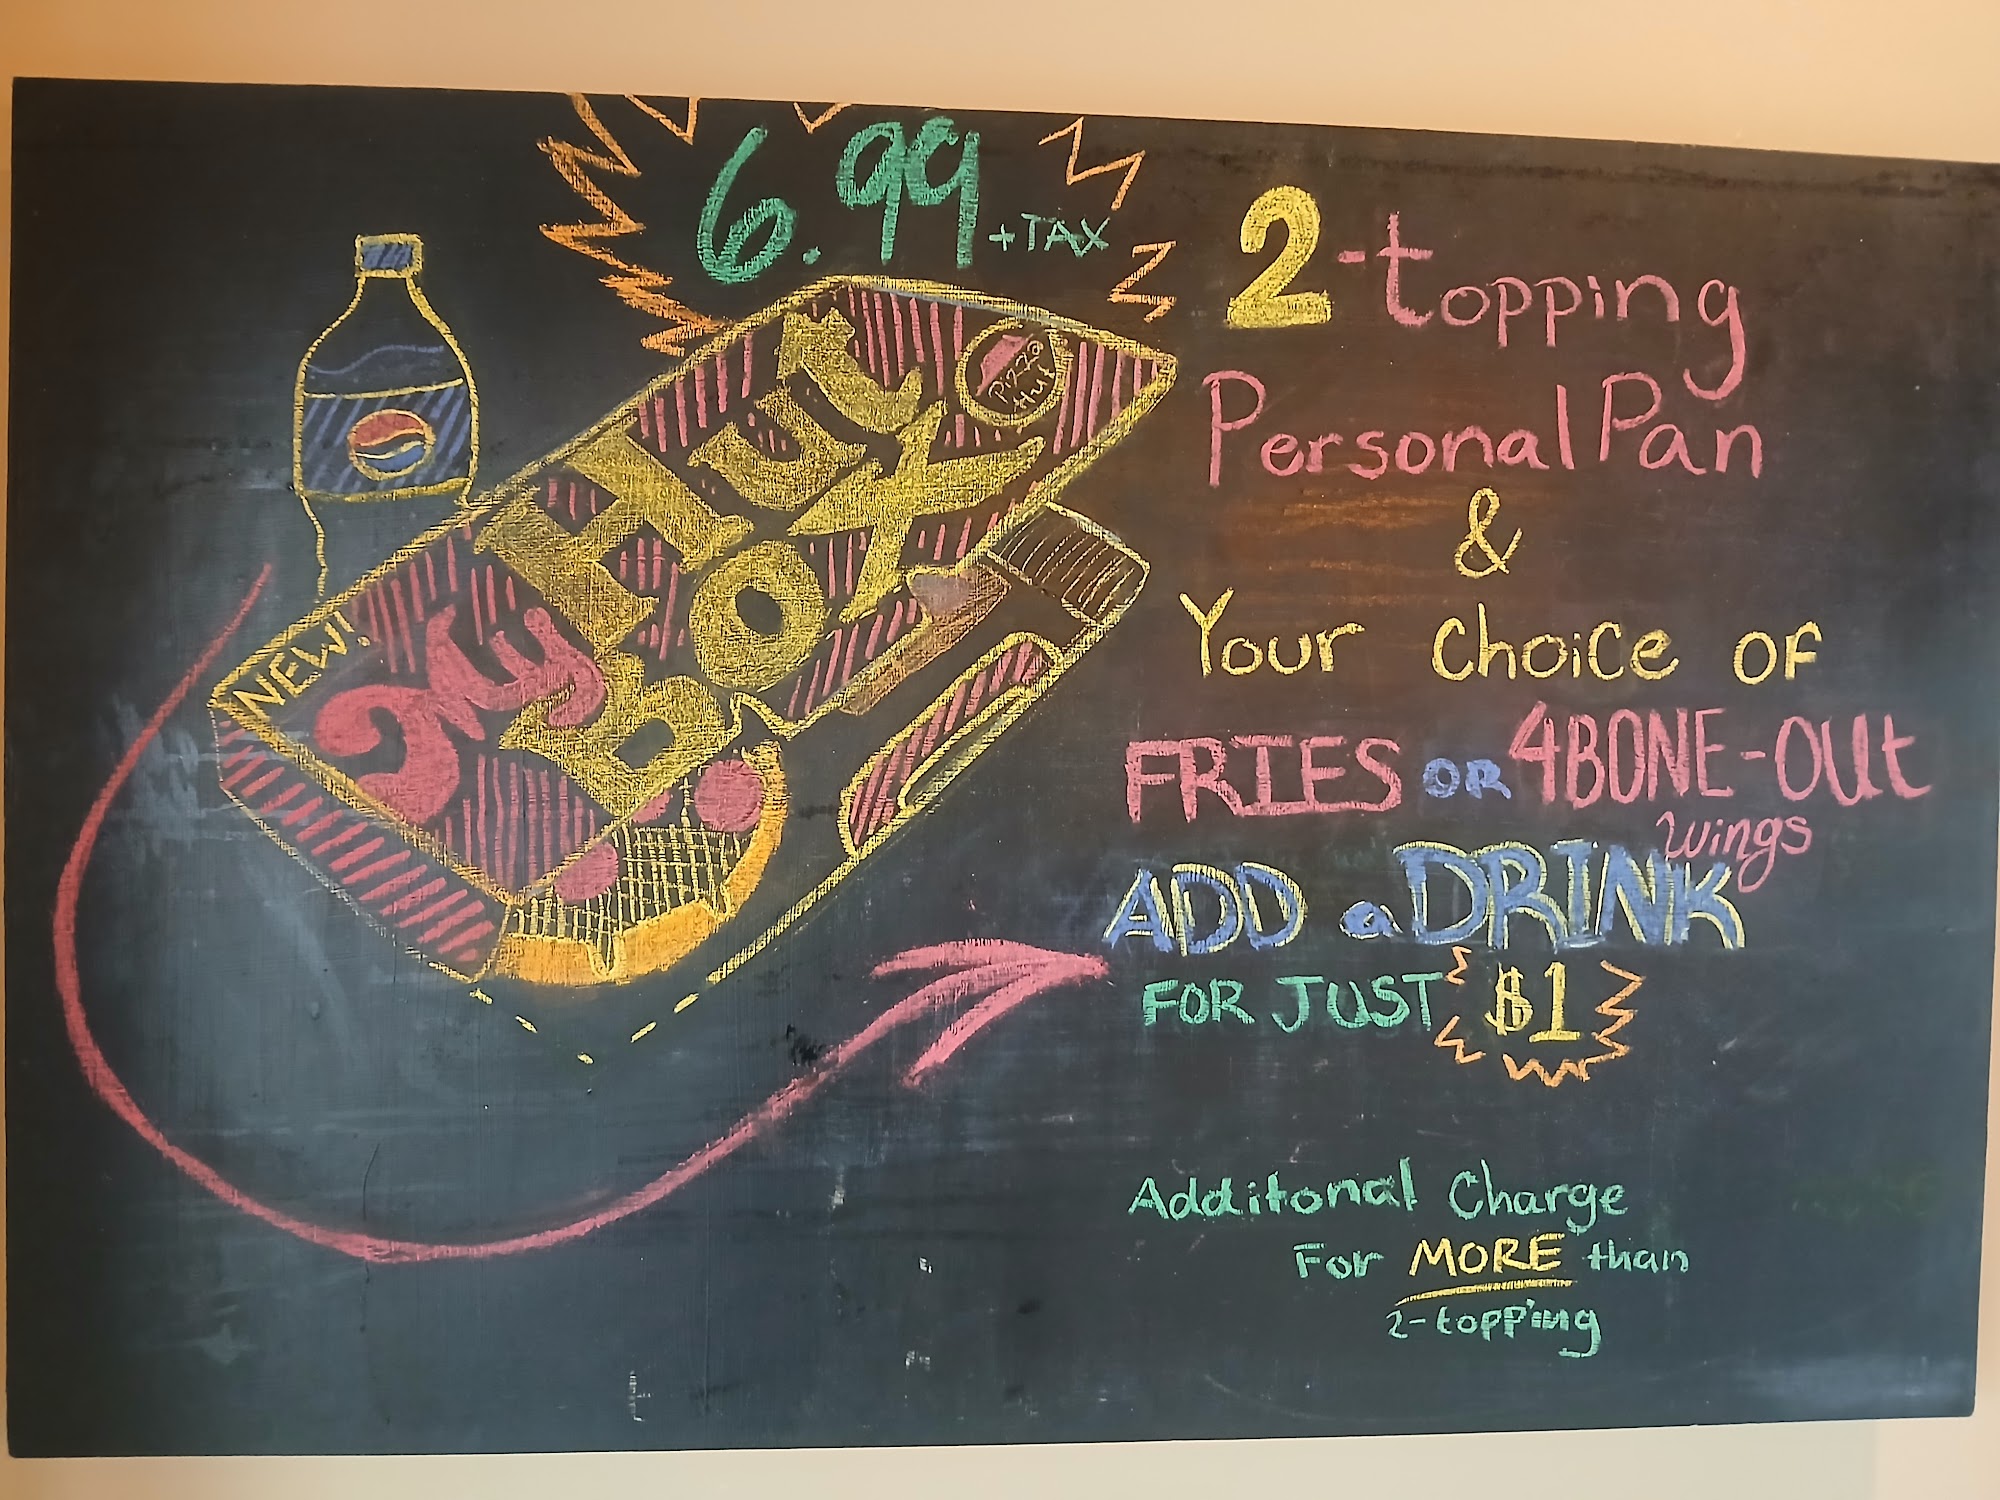 6.99 +TAX
NEW!
My
Hut
BOX
Pizza
Hut
2-topping
Personal Pan
&
Your choice of
FRIES OR 4 BONE-OUt
wings
ADD a DRINK
FOR JUST $1
Additonal Charge
For MORE than
2-topping